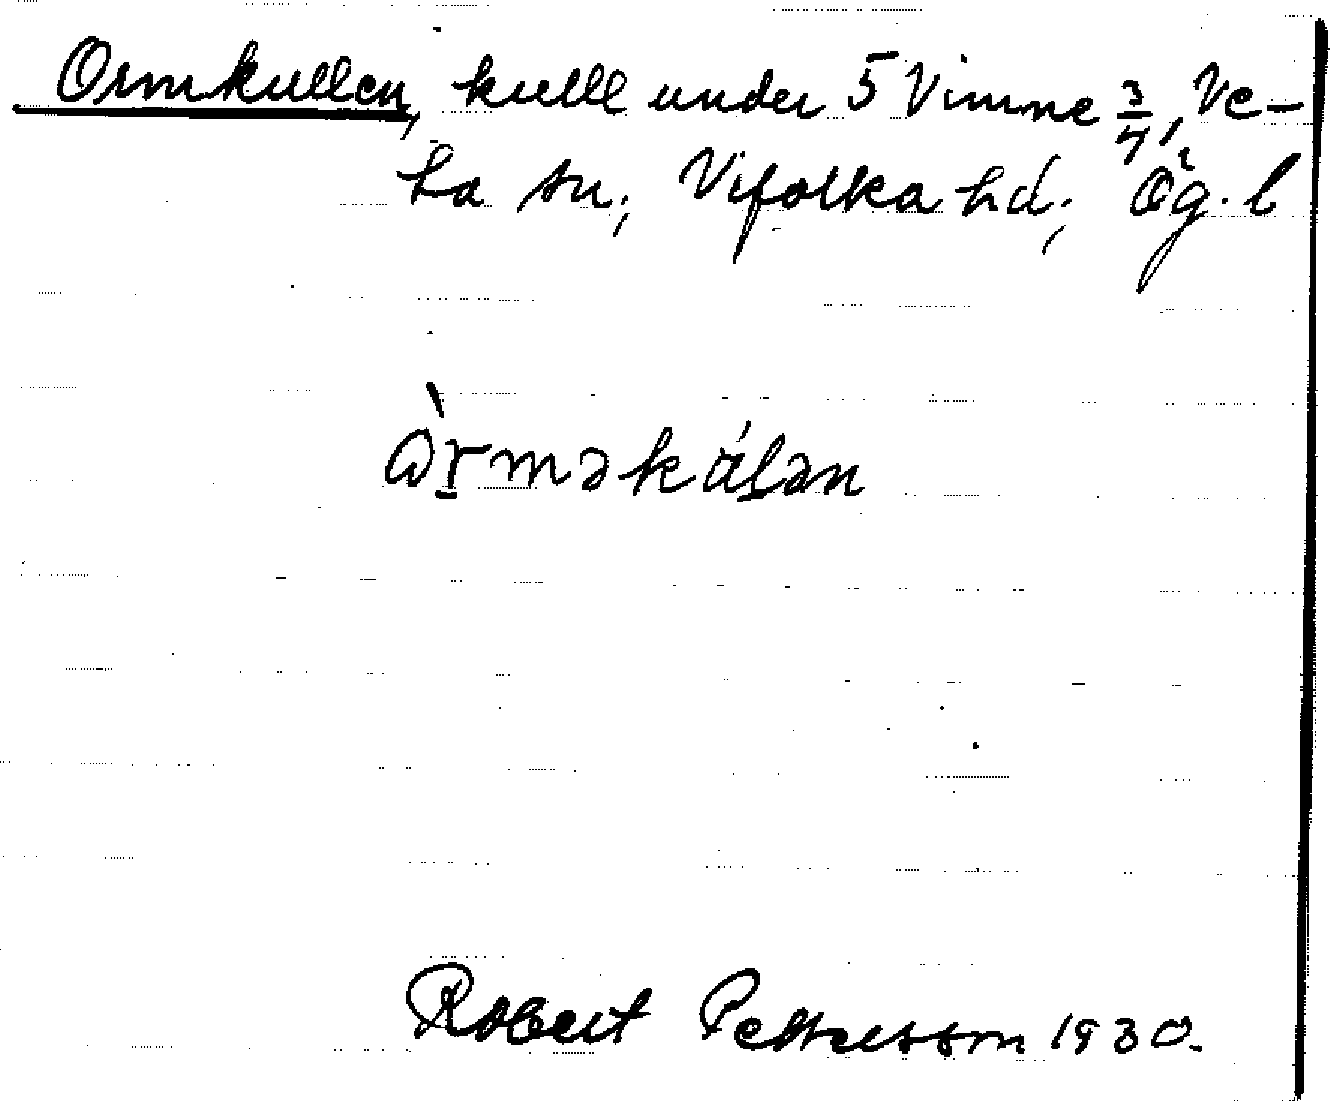 Ormkullen, kulle under 5 Vimne 3/7, Ve-
ta sn; Vifolka hd; Ög. l
òrməkáļən
Robert Pettersson 1930.